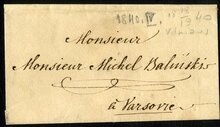 1840. IV.
1840
Monsieur
Monsieur Michel Baliński
à Varsovie